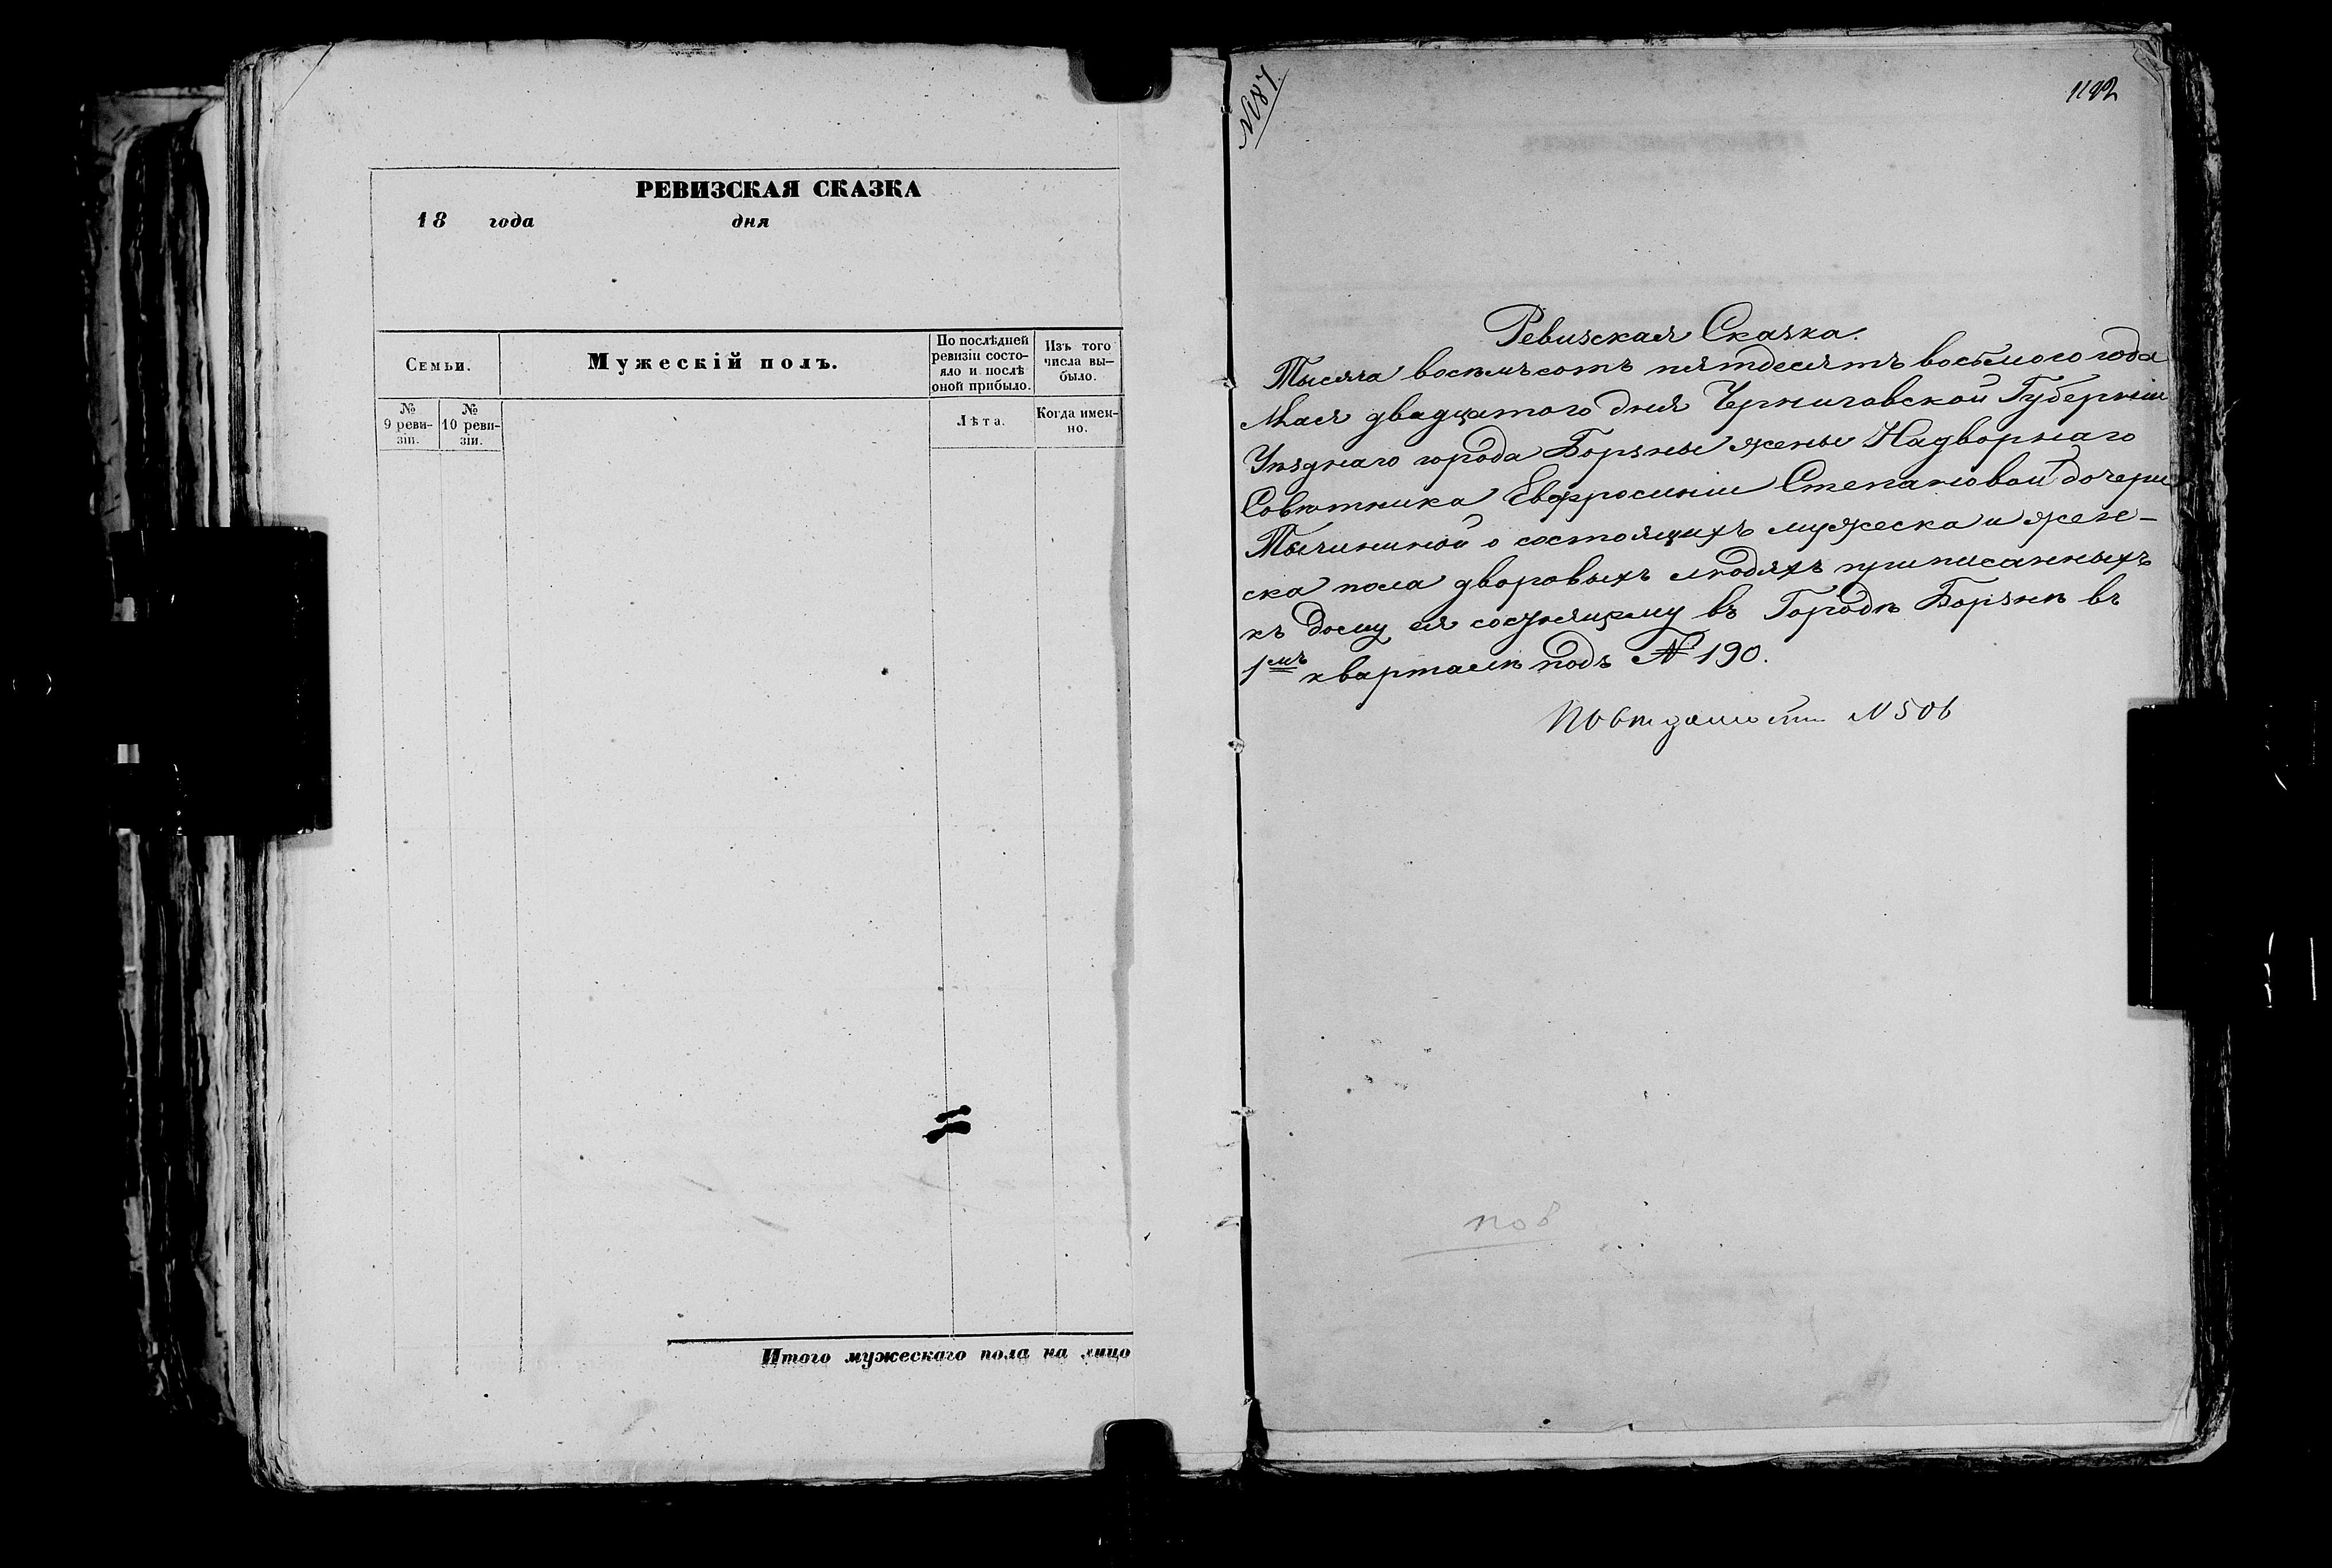 РЕВИЗСКАЯ СКАЗКА
18 года дня
Семьи.
Мужескій полъ.
По послѣдней
ревизіи состо-
яло и послѣ
оной прибыло.
Изъ того
числа вы-
было.
№
9 реви-
зіи.
№
10 реви-
зіи.
Лѣта.
Когда имен-
но.
Итого мужескаго пола на лицо
N 87
Ревизская Сказка.
Тысяча восемьсотъ пятдесятъ восьмого года
Мая двадцатого дня Черниговской Губерніи
Уѣзднаго города Борзны жены Надворнаго
Совѣтника Евфросиніи Степановой дочери
о состоящихъ мужеска и жен-
ска пола дворовыхъ людяхъ приписанныхъ
къ дому ея въ Городѣ Борзнѣ въ
1мъ кварталѣ подъ № 190.
N 506